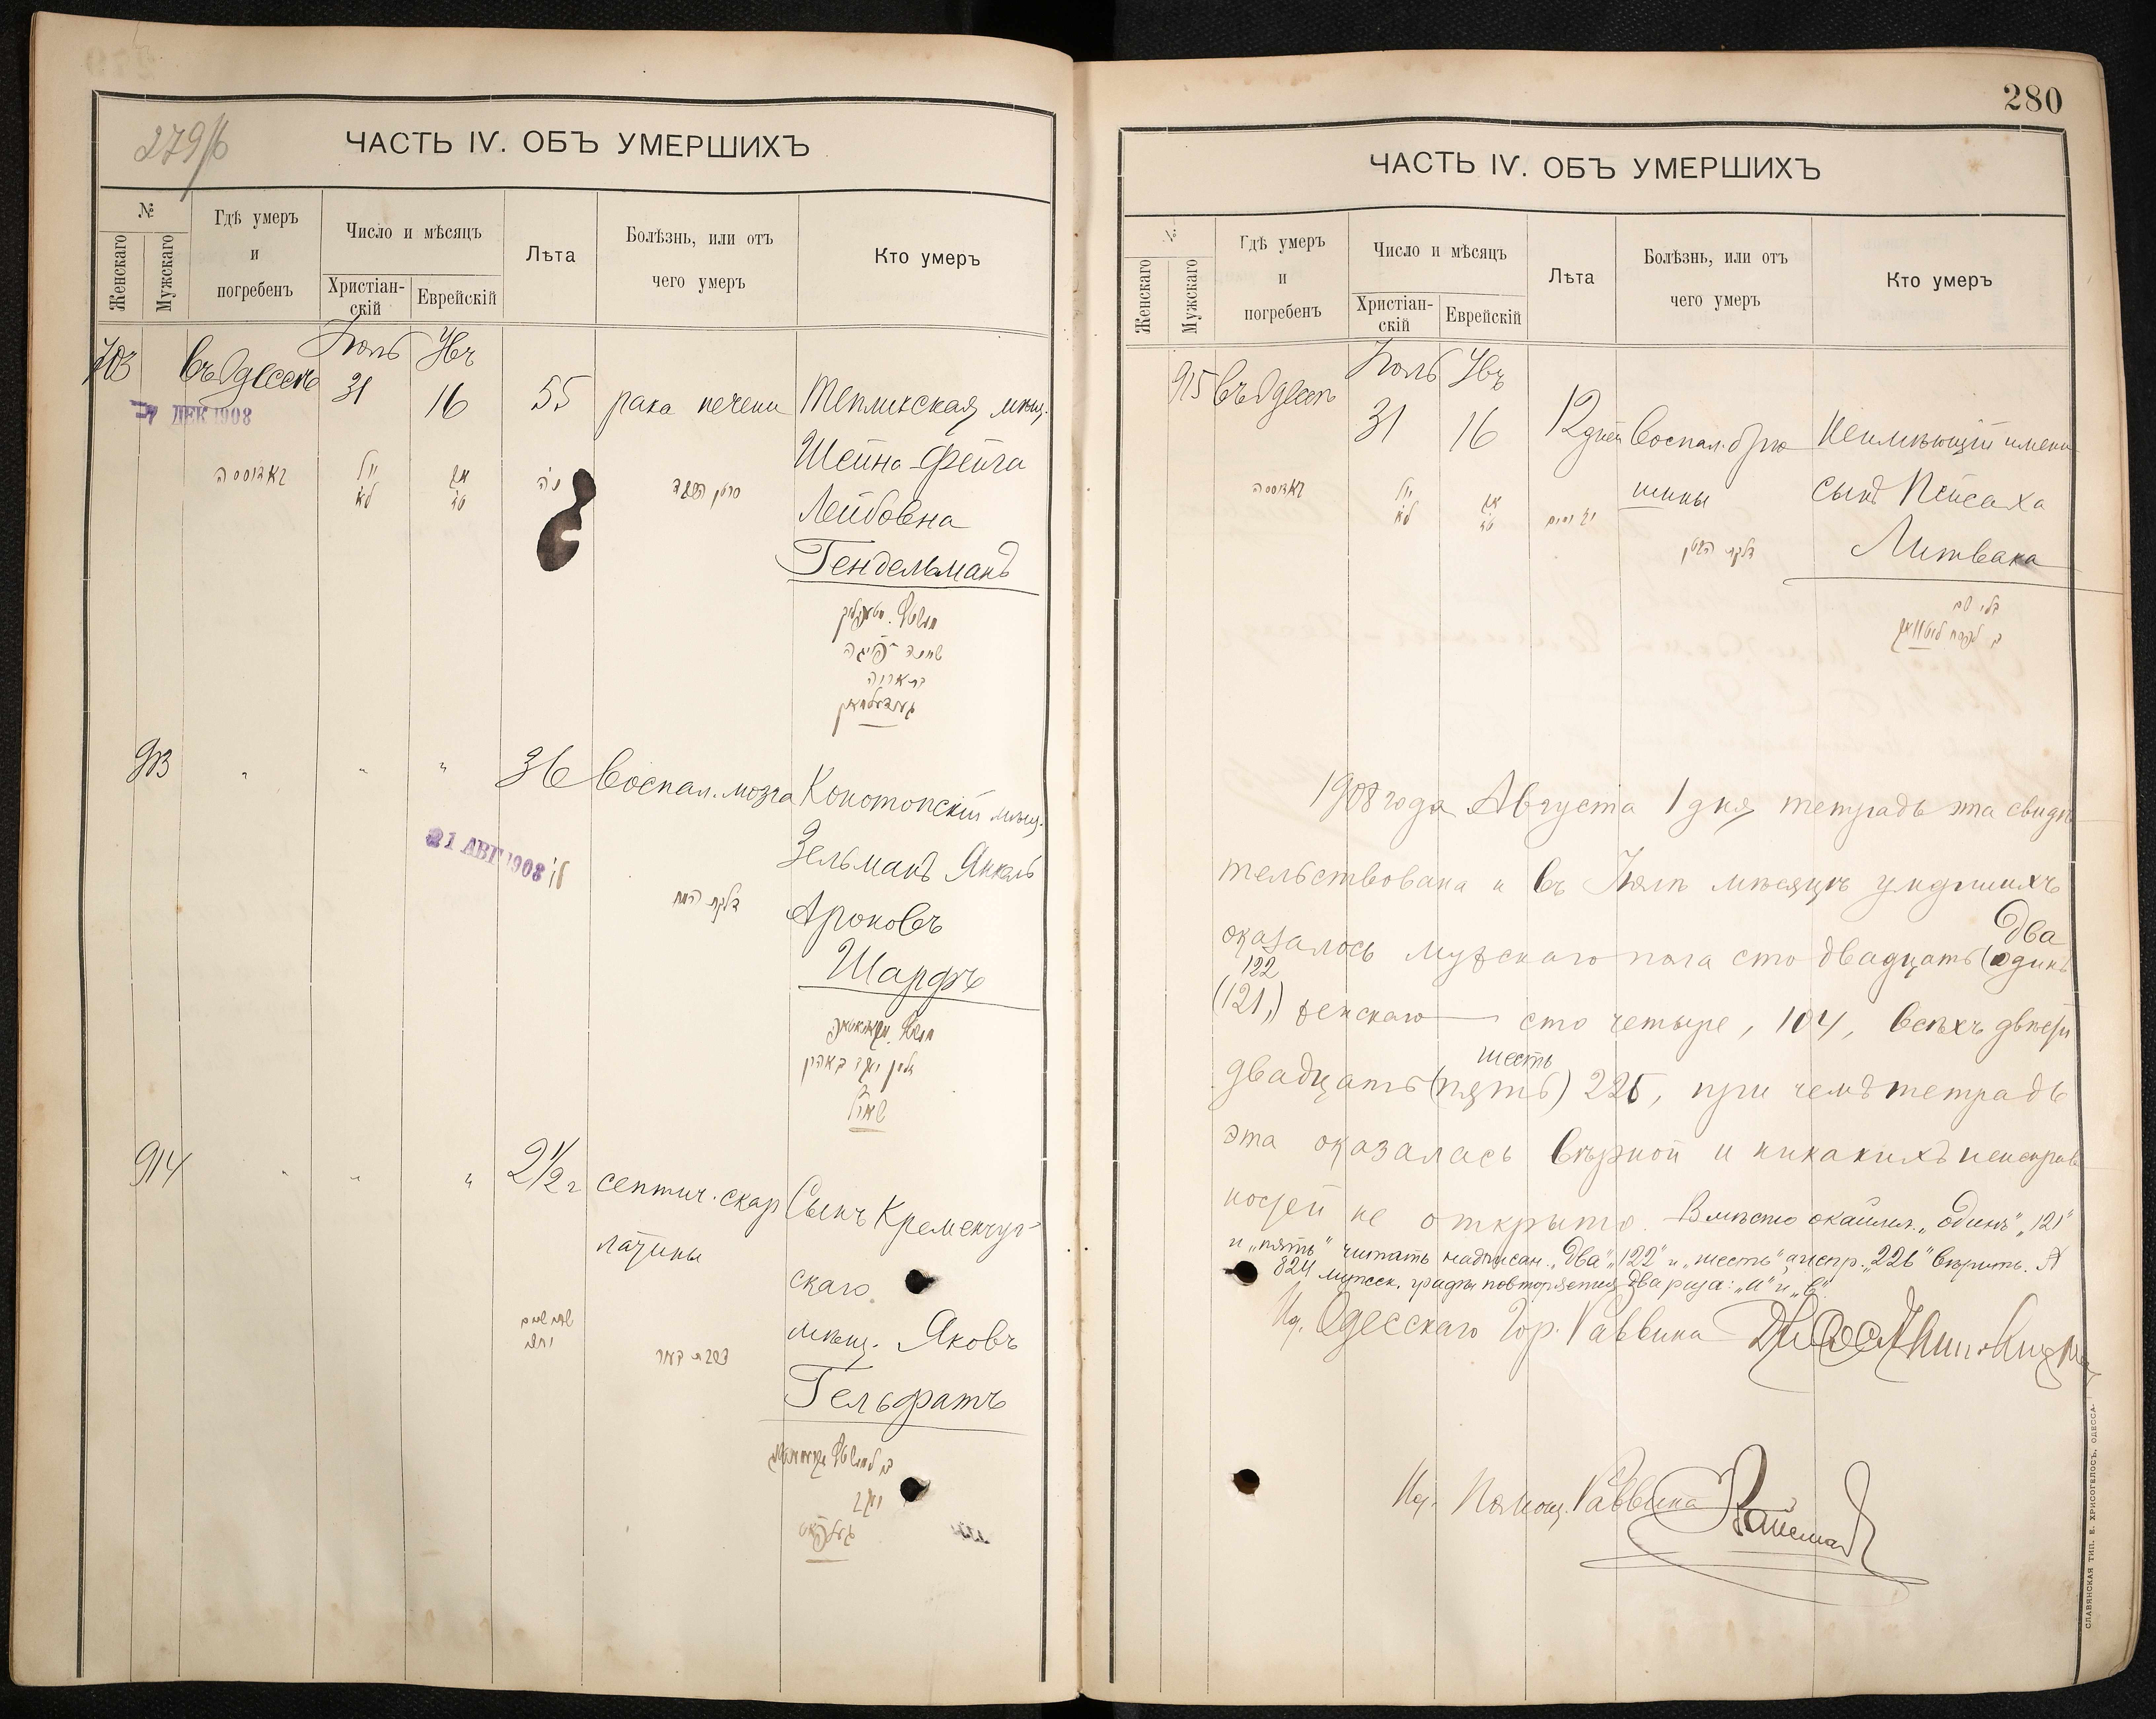 279/б
ЧАСТЬ IV. ОБЪ УМЕРШИХЪ
№
Женскаго
Мужскаго
Гдѣ умеръ
и
погребенъ
Число и мѣсяцъ
Христіан-
скій
Еврейскій
Лѣта
Болѣзнь, или отъ
чего умеръ
Кто умеръ
703
въ Одессѣ
Іюль
31
Увъ
16
55
рака печени
Тепликская мѣщ.
Шейна-Фейга
Лейбовна
Гендельманъ
7 ДЕК 1908
אדעססה
יול
לא
אב
טז
נ״ה
סרטן הכבד
913
"
"
"
36
Воспал. мозга
Конотопскій мѣщ.
Зельманъ Янкель
Ароновъ
Шарфъ
21 АВГ 1908
ל״ו
דלקת המח
914
"
"
"
2 1/2 г
септич. скар
латины
Сынъ Кременчуг-
скаго
мѣщ. Яковъ
Гельфатъ
280
ЧАСТЬ IV. ОБЪ УМЕРШИХЪ
№
Женскаго
Мужскаго
Гдѣ умеръ
и
погребенъ
Число и мѣсяцъ
Христіан-
скій
Еврейскій
Лѣта
Болѣзнь, или отъ
чего умеръ
Кто умеръ
915
въ Одессѣ
Іюль
31
Увъ
16
12 дней
Воспал. брю
шины
Неимѣющій имени
сынъ Пейсаха
Литвака
יול
לא
אב
טז
דלקת הבטן
בלי שם
1908 года Августа 1 дня тетрадь эта свидѣ
тельствована и въ Іюлѣ мѣсяцѣ умершихъ
два
оказалось мужскаго пола сто двадцать (одинъ
122
(121,) женскаго — сто четыре, 104, всѣхъ двѣсти
шесть
двадцать (пять) 226, при чемъ тетрадь
эта оказалась вѣрной и никакихъ неисправ
ностей не открыто. Вмѣсто окаймл. „одинъ" „121"
и „пять" читать надписан. „два" „122" и „шесть" а испр. „226" вѣрить. А
824 мужск. графы повторяется два раза: „а" и „б".
Ид. Одесскаго Гор. Раввина
Ид. Помощ. Раввина Вайсман
СЛАВЯНСКАЯ ТИП. Е. ХРИСОГЕЛОСЪ, ОДЕССА.